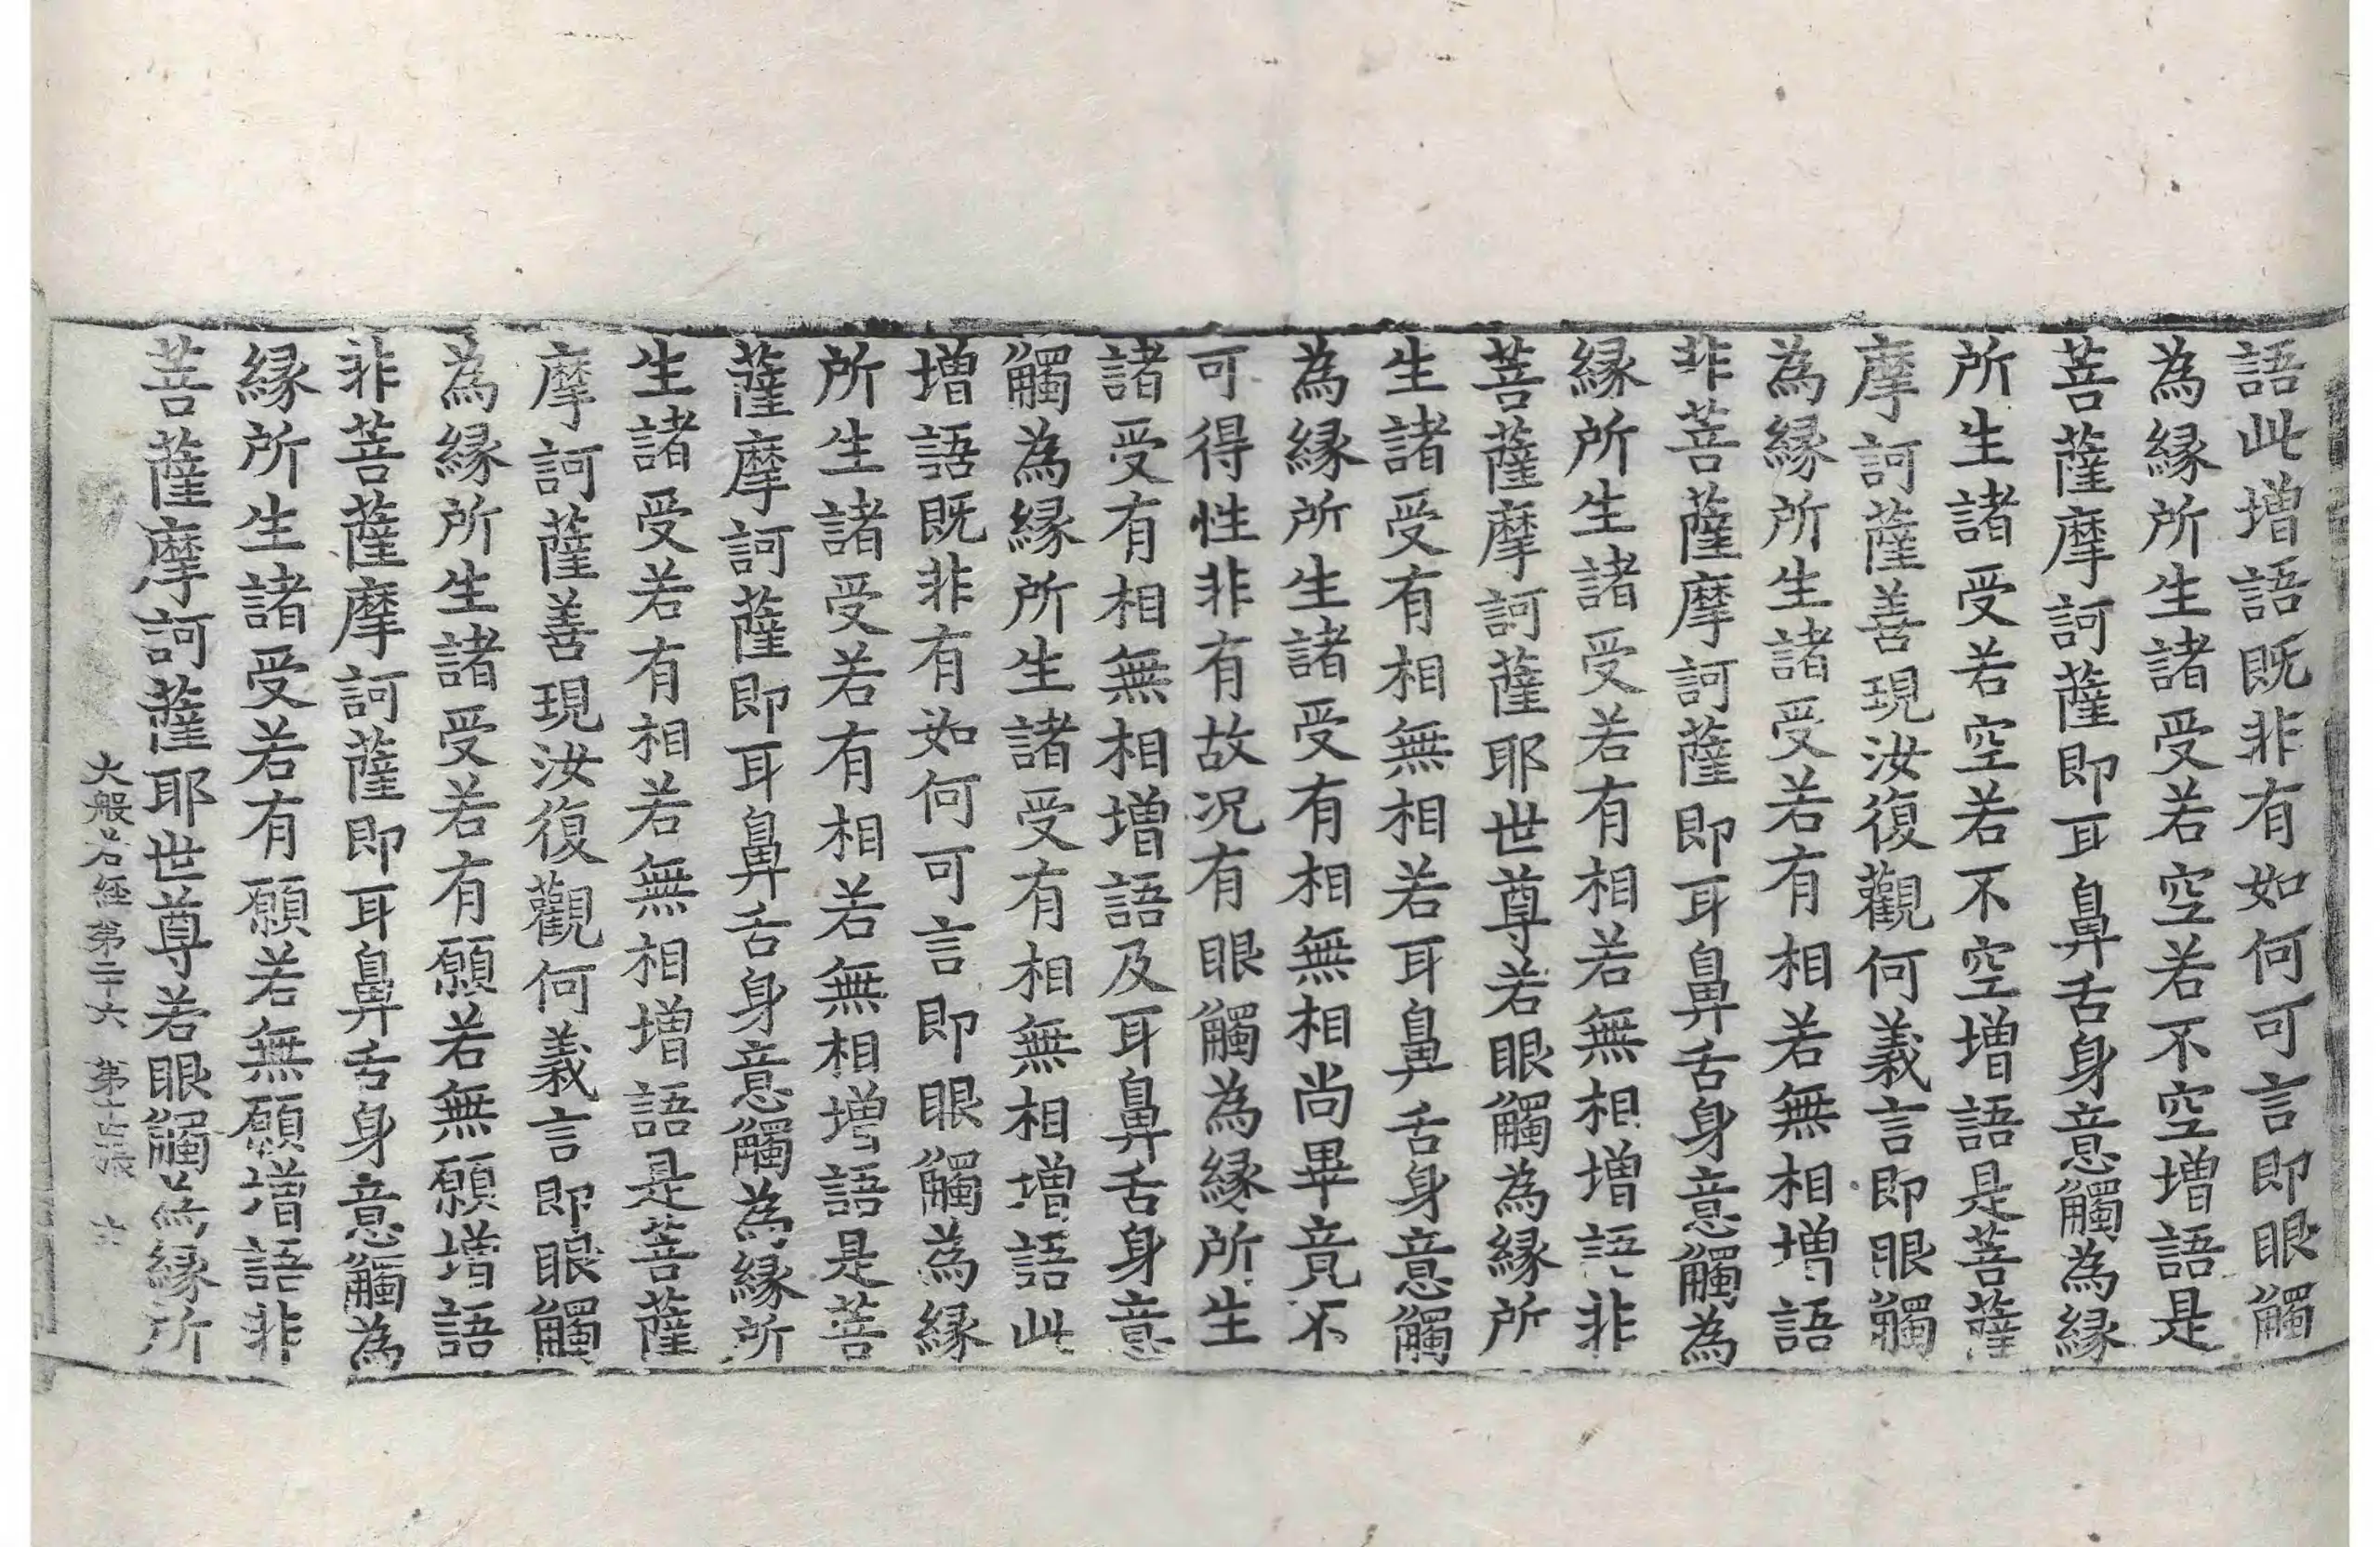 語此增語既非有如何可言即眼觸
為縁所生諸受若空若不空增語是
菩薩摩訶薩即耳鼻舌身意觸為縁
所生諸受若空若不空增語是菩薩
摩訶薩善現汝復觀何義言即眼觸
為縁所生諸受若有相若無相增語
非菩薩摩訶薩即耳鼻舌身意觸為
縁所生諸受若有相若無相增語非
菩薩摩訶薩耶世尊若眼觸為縁所
生諸受有相無相若耳鼻舌身意觸
為縁所生諸受有相無相尚畢竟不
可得性非有故况有眼觸為縁所生
諸受有相無相增語及耳鼻舌身意
觸為縁所生諸受有相無相增語此
增語既非有如何可言即眼觸為縁
所生諸受若有相若無相增語是菩
薩摩訶薩即耳鼻舌身意觸為縁所
生諸受若有相若無相增語是菩薩
摩訶薩善現汝復觀何義言即眼觸
為縁所生諸受若有願若無願增語
非菩薩摩訶薩即耳鼻舌身意觸為
縁所生諸受若有願若無願增語非
菩薩摩訶薩耶世尊若眼觸為縁所
大般若經第二十六 第十五張